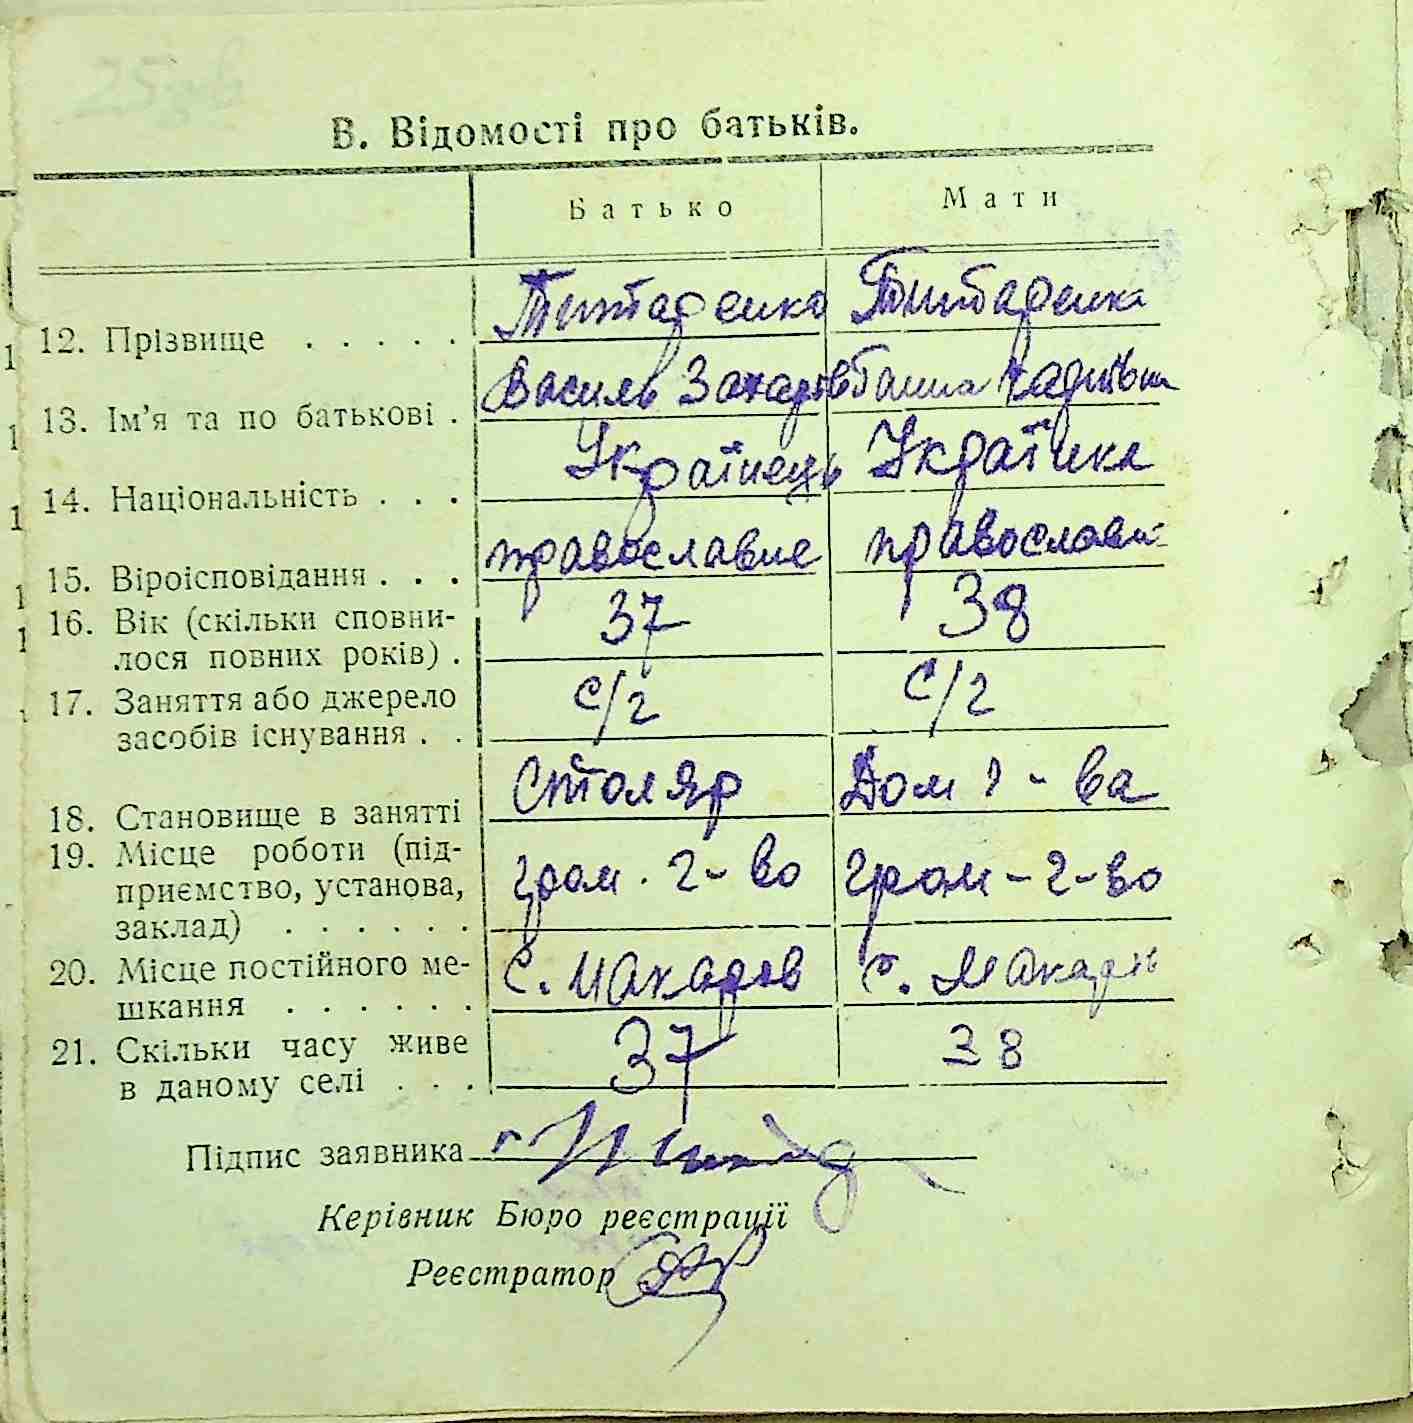 В. Відомості про батьків.
Батько Мати
12. Прізвище . . . . .
13. Ім'я та по батькові . Василь Захарів Ганна
14. Національність . . . Українець Українка
15. Віроісповідання . . . православне православн
16. Вік (скільки сповни-
лося повних років) . 37 38
17. Заняття або джерело
засобів існування . . с/г с/г
18. Становище в занятті столяр Дом г-ва
19. Місце роботи (під-
приємство, установа,
заклад) . . . . . . гром. г-во гром-г-во
20. Місце постійного ме-
шкання . . . . . . с. Макарів с. Макарів
21. Скільки часу живе
в даному селі . . . 37 38
Підпис заявника
Керівник Бюро реєстрації
Реєстратор